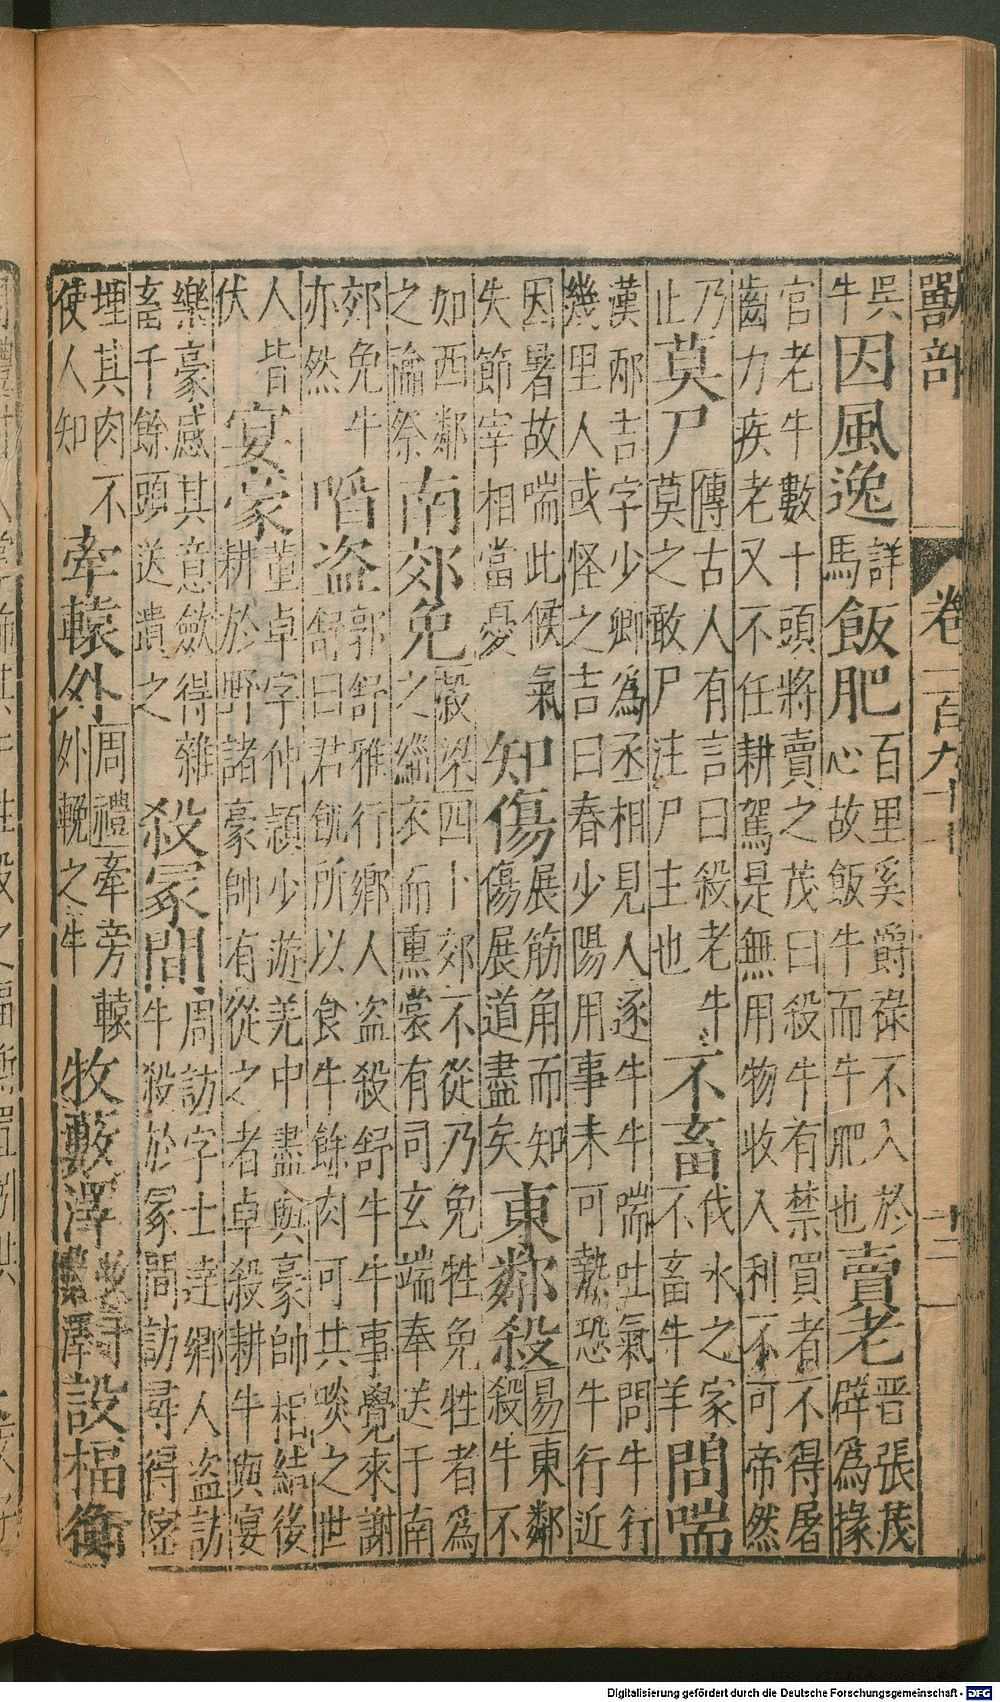 獸部 卷一百九十 二一
吳牛 因風逸 詳馬 飯肥 百里奚爵祿不入於心故飯牛而牛肥也 賣老 晋張茂辟爲掾
官老牛數十頭將賣之茂曰殺牛有禁買者不得屠
齒力疾老又不任耕駕是無用物收入利不可帝然
乃止 莫尸 傳古人有言曰殺老牛莫之敢尸注尸主也 不畜 伐氷之家不畜牛羊 問喘
漢邴吉字少卿爲丞相見人逐牛牛喘吐氣問牛行
幾里人或怪之吉曰春少陽用事未可熱恐牛行近
因暑故喘此候氣失節宰相當憂 知傷 展筋角而知傷展道盡矣 東鄰殺 易東鄰殺牛不
如西鄰之禴祭 南郊免 穀梁四卜郊不從乃免牲免牲者爲之緇衣而熏裳有司玄端奉送于南
郊免牛亦然 啗盜 郭舒雅行鄉人盜殺舒牛牛事覺來謝舒曰君飢所以食牛餘肉可共啖之世
人皆伏 宴豪 董卓字仲頴少遊羌中盡與豪帥相結後耕於野諸豪帥有從之者卓殺耕牛與宴
樂豪感其意斂得雜畜千餘頭送遺之 殺冢間 周訪字士達鄉人盜訪牛殺於冢間訪尋得密
埋其肉不使人知 牽轅外 周禮牽旁轅外輓之牛 牧藪澤 設楅衡
Digitalisierung gefördert durch die Deutsche Forschungsgemeinschaft - DFG